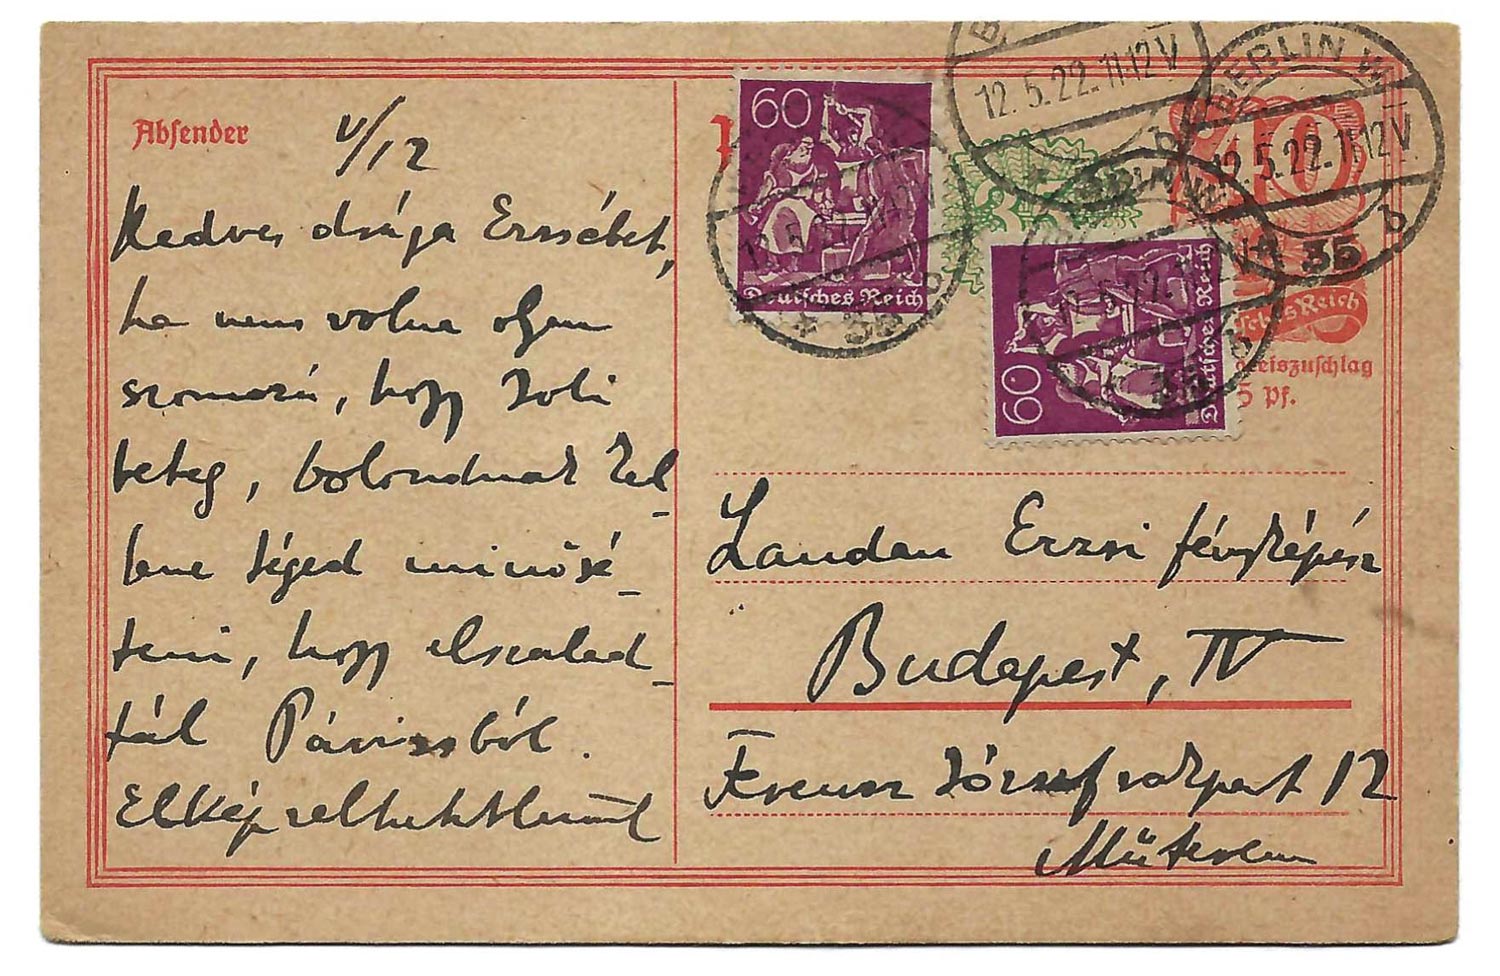 Absender
V/12
Kedves drága Erzsébet,
ha nem volna olyan
szomorú, hogy Zoli
beteg, bolondnak kel-
lene téged minősí-
teni, hogy elszalad-
tál Párizsból.
Elképzelhetetlenül
60
Deutsches Reich
60
Deutsches Reich
12.5.22.11-12V
b
BERLIN W
12.5.22.11-12V
35 b
40
sches Reich
reiszuschlag
5 Pf.
Landau Erzsi fényképész
Budapest, IV
Ferenz József rakpart 12
Műterem